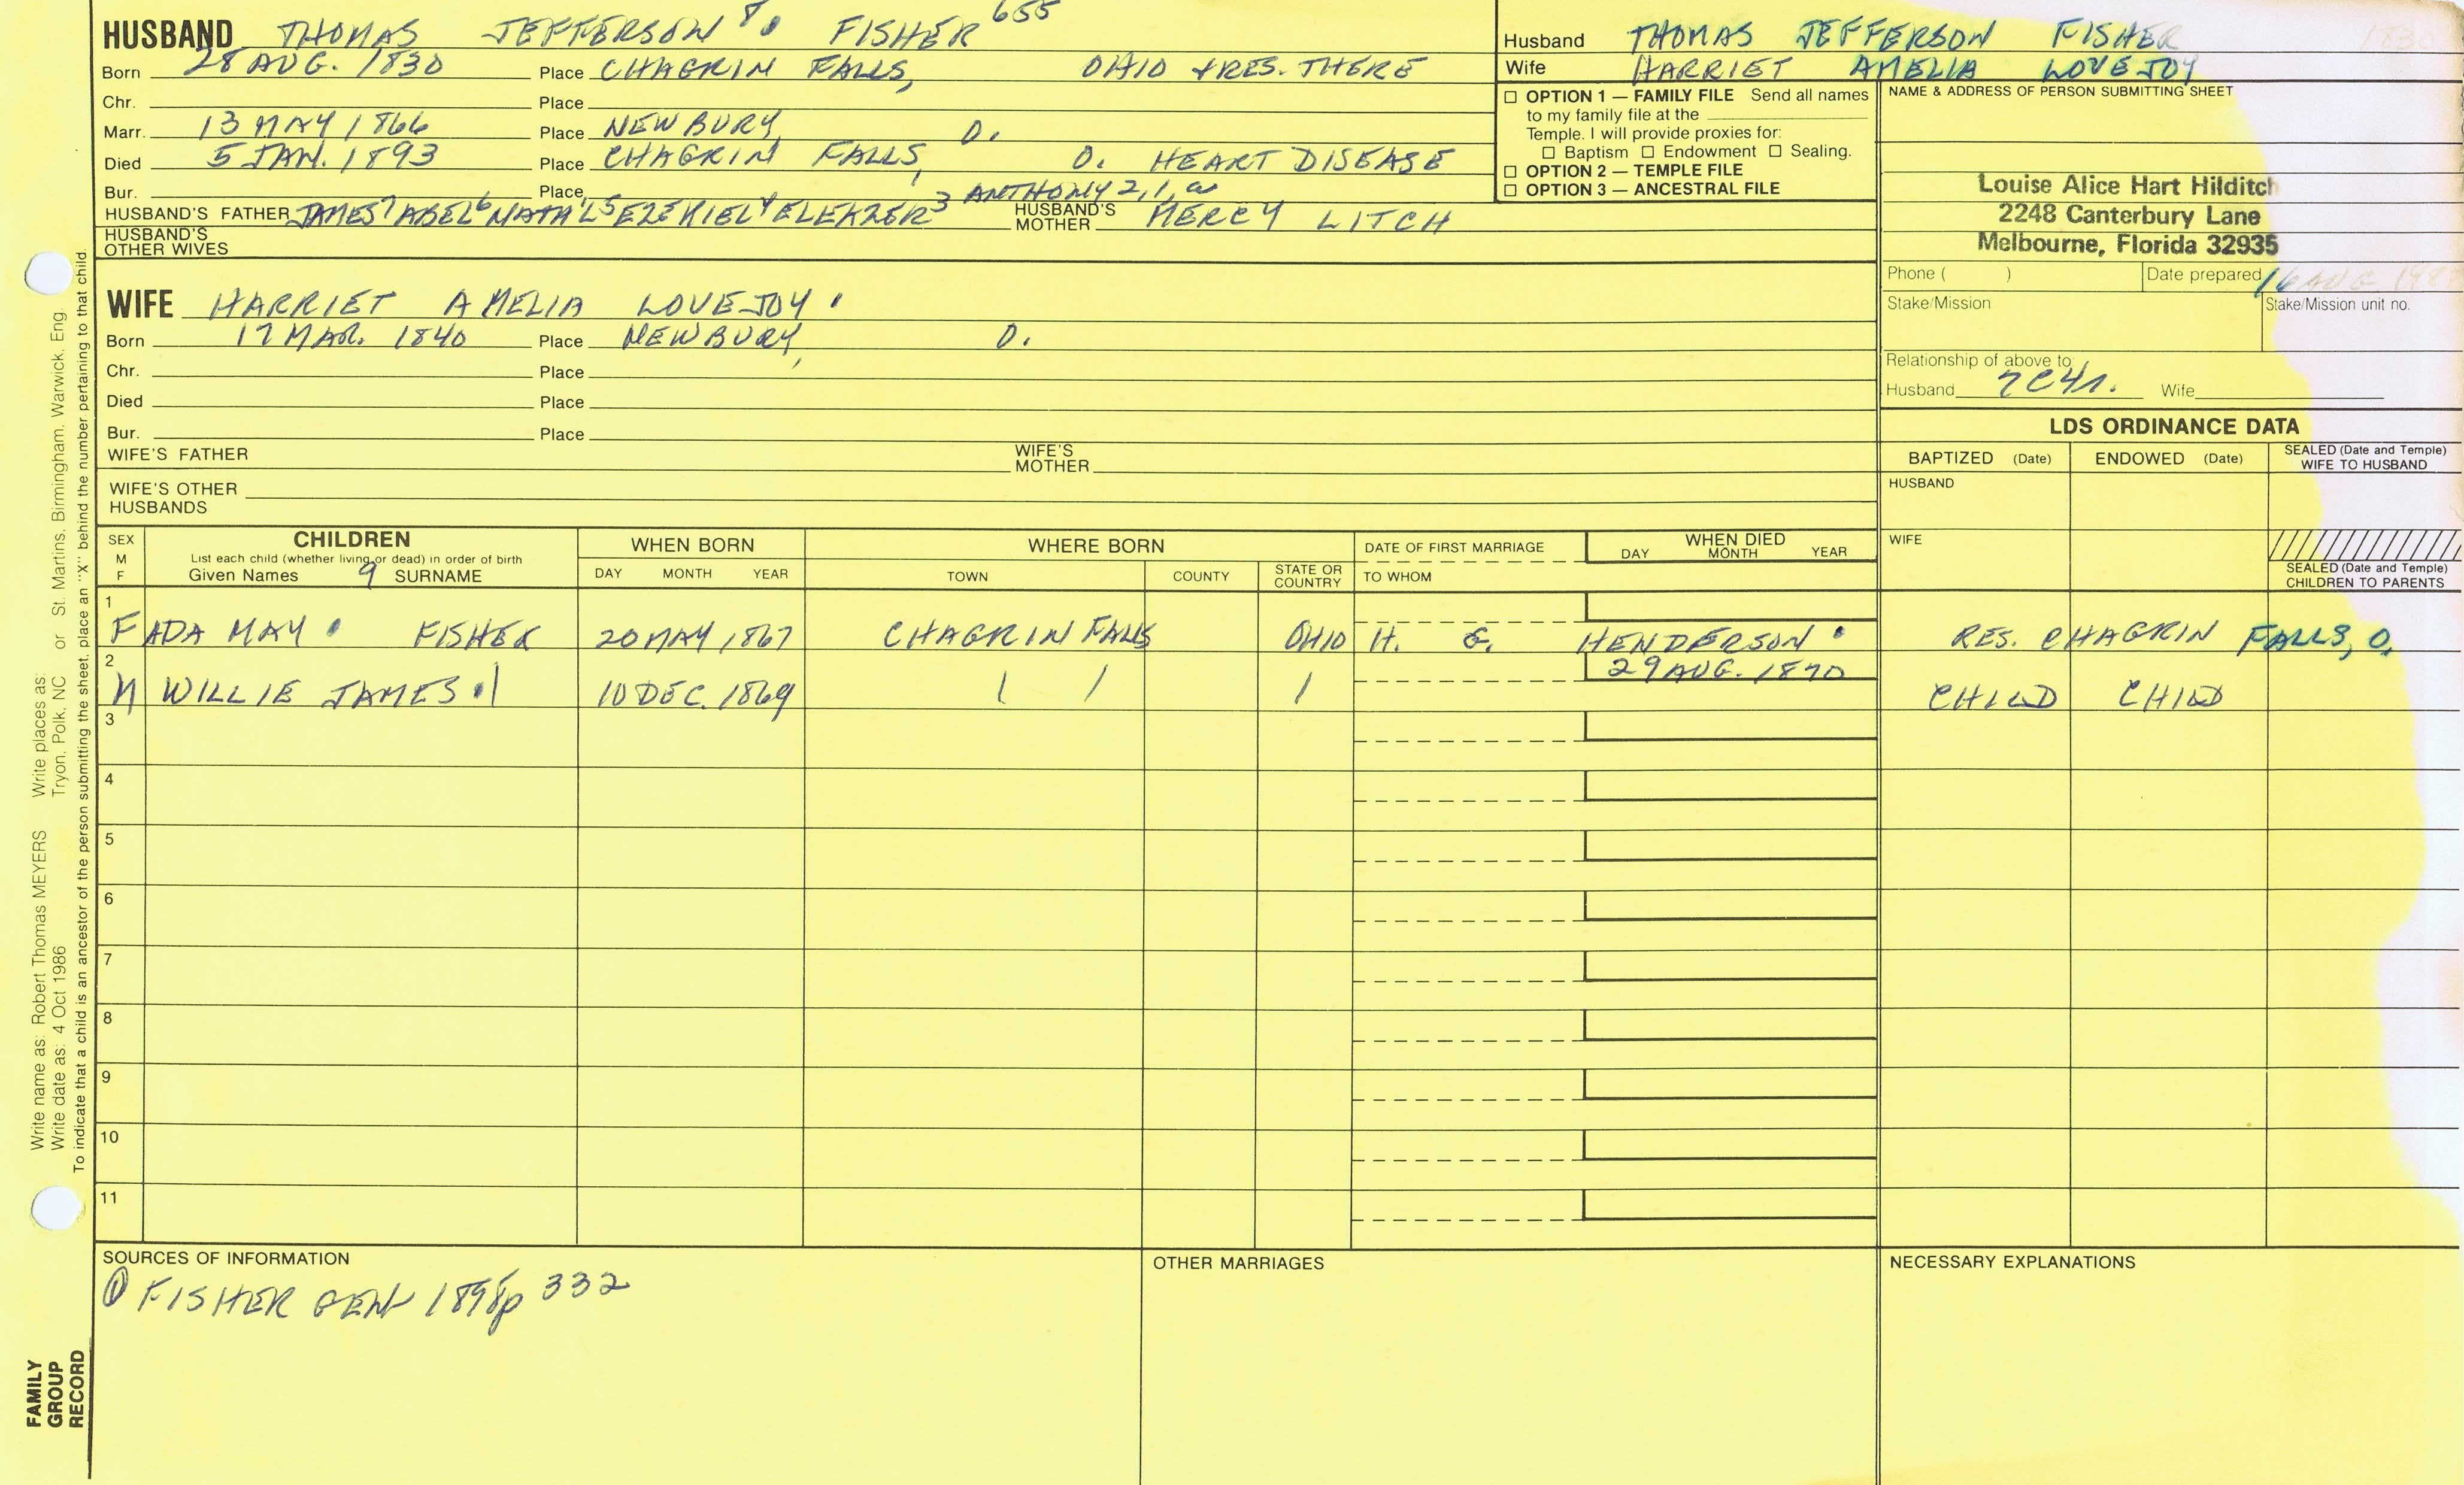 HUSBAND THOMAS JEFFERSON 8. FISHER 655
Born 28 AUG. 1830 Place CHAGRIN FALLS, OHIO & RES. THERE
Chr. Place
Marr. 13 MAY 1866 Place NEWBURY, O.
Died 5 JAN. 1893 Place CHAGRIN FALLS, O. HEART DISEASE
Bur. Place
HUSBAND'S FATHER JAMES7 ABEL6 NATH'L5 EZEKIEL4 ELEAZER3 ANTHONY 2,1, HUSBAND'S MOTHER MERCY LITCH
HUSBAND'S OTHER WIVES
Husband THOMAS JEFFERSON FISHER
Wife HARRIET AMELIA LOVEJOY
☐ OPTION 1 — FAMILY FILE Send all names
to my family file at the
Temple. I will provide proxies for:
☐ Baptism ☐ Endowment ☐ Sealing.
☐ OPTION 2 — TEMPLE FILE
☐ OPTION 3 — ANCESTRAL FILE
NAME & ADDRESS OF PERSON SUBMITTING SHEET
Louise Alice Hart Hilditch
2248 Canterbury Lane
Melbourne, Florida 32935
Phone ( ) Date prepared 16 AUG
Stake/Mission Stake/Mission unit no.
Relationship of above to:
Husband Wife
WIFE HARRIET AMELIA LOVEJOY
Born 17 MAR. 1840 Place NEWBURY, O.
Chr. Place
Died Place
Bur. Place
WIFE'S FATHER WIFE'S MOTHER
WIFE'S OTHER HUSBANDS
LDS ORDINANCE DATA
BAPTIZED (Date) ENDOWED (Date) SEALED (Date and Temple) WIFE TO HUSBAND
HUSBAND
WIFE
SEALED (Date and Temple) CHILDREN TO PARENTS
SEX M F CHILDREN WHEN BORN WHERE BORN DATE OF FIRST MARRIAGE WHEN DIED
List each child (whether living or dead) in order of birth
Given Names 9 SURNAME DAY MONTH YEAR TOWN COUNTY STATE OR COUNTRY TO WHOM DAY MONTH YEAR
1
F ADA MAY FISHER 20 MAY 1867 CHAGRIN FALLS OHIO H. G. HENDERSON RES. CHAGRIN FALLS, O.
2 29 AUG. 1870
M WILLIE JAMES 10 DEC. 1869 CHILD CHILD
3
4
5
6
7
8
9
10
11
SOURCES OF INFORMATION
① FISHER GEN 1898 p 332
OTHER MARRIAGES
NECESSARY EXPLANATIONS
Write name as: Robert Thomas MEYERS Write places as:
Write date as: 4 Oct 1986 Tryon, Polk, NC or St. Martins, Birmingham, Warwick, Eng.
To indicate that a child is an ancestor of the person submitting the sheet, place an "X" behind the number pertaining to that child.
FAMILY
GROUP
RECORD